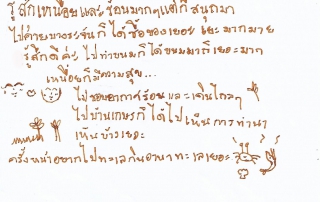 รู้สึกเหนื่อยและร้อนมากๆแต่ก็สนุกมา
ไปค่ายบางระจันก็ได้ซื้อของเยอะ เยอะมากมาย
รู้สึกดีค่ะ ไปทำขนมก็ได้ขนมมาก็เยอะมาก
เหนื่อยก็มีความสุข...
ไปชอบอากาศร้อนและเดินไกลๆ
ไปบ้านเกษรก็ได้ไปเห็นการทำนา
เห็นบัวเยอะ
ครั้งหน้าอยากไปทะเลกินอาหารทะเลเยอะ